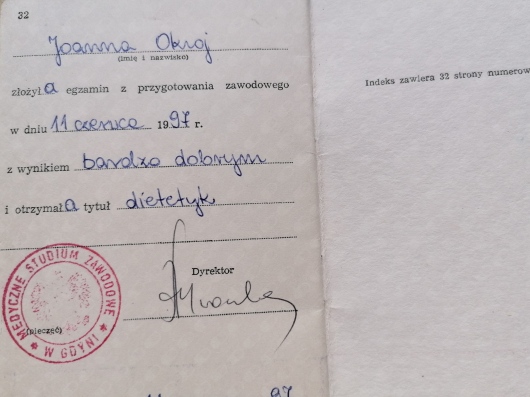 32
Joanna Okroj
(imię i nazwisko)
złożyła egzamin z przygotowania zawodowego
w dniu 11 czerwca 1997 r.
z wynikiem bardzo dobrym
i otrzymała tytuł dietetyk
Dyrektor
MEDYCZNE STUDIUM ZAWODOWE
W GDYNI
(pieczęć)
97
Indeks zawiera 32 strony numerow